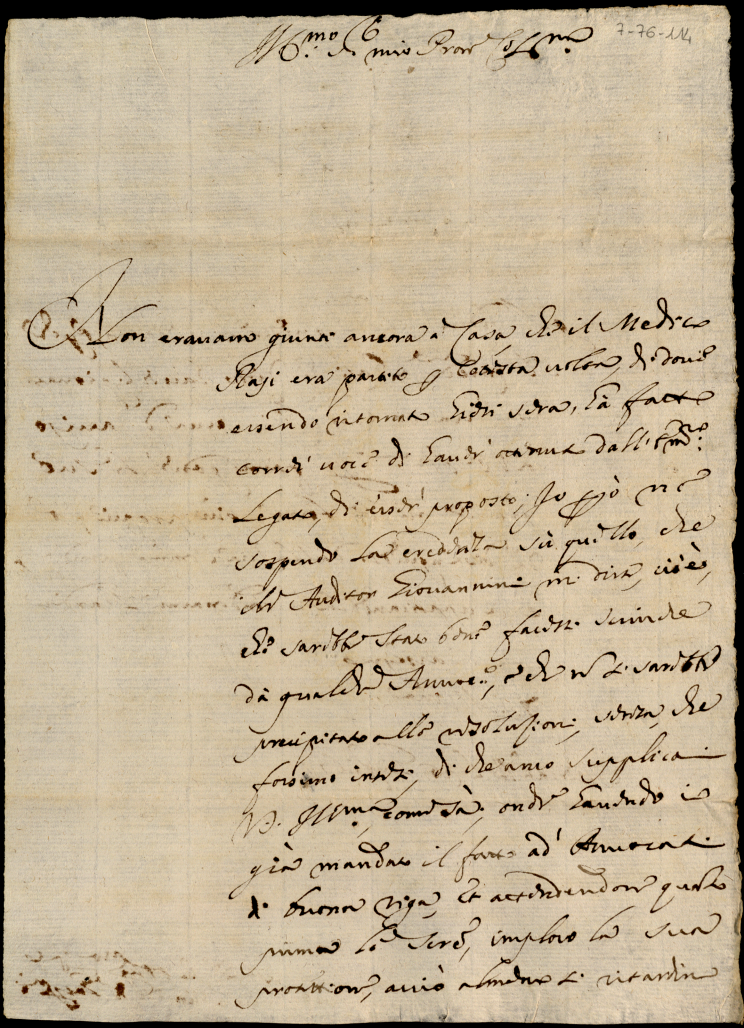 7-76-114
Ill.mo S.r mio Pron Col.mo
Non eravamo giunti ancora à Casa, che il Medico
era partito p cotesta volta, di dove
essendo ritornato hieri sera, hà fatto
correr voce di haver ottenuto dall'
Legato, di esser proposto; Io però ne
sospendo la credenza sù quello, che
Auditor Giovannini mi disse, cioè,
che sarebbe stato bene facessi scrivere
da qualche Avvoc.o, e che nō si sarebbe
precipitato alla resolusione, senza, che
fossimo intesi, di che anco supplicai
V. S. Ill.ma, come sà, onde havendo io
già mandato il fatto ad Avvocati
di buona riga, et attendendone quanto
prima le , imploro la sua
protettione, acciò almeno si ritardino